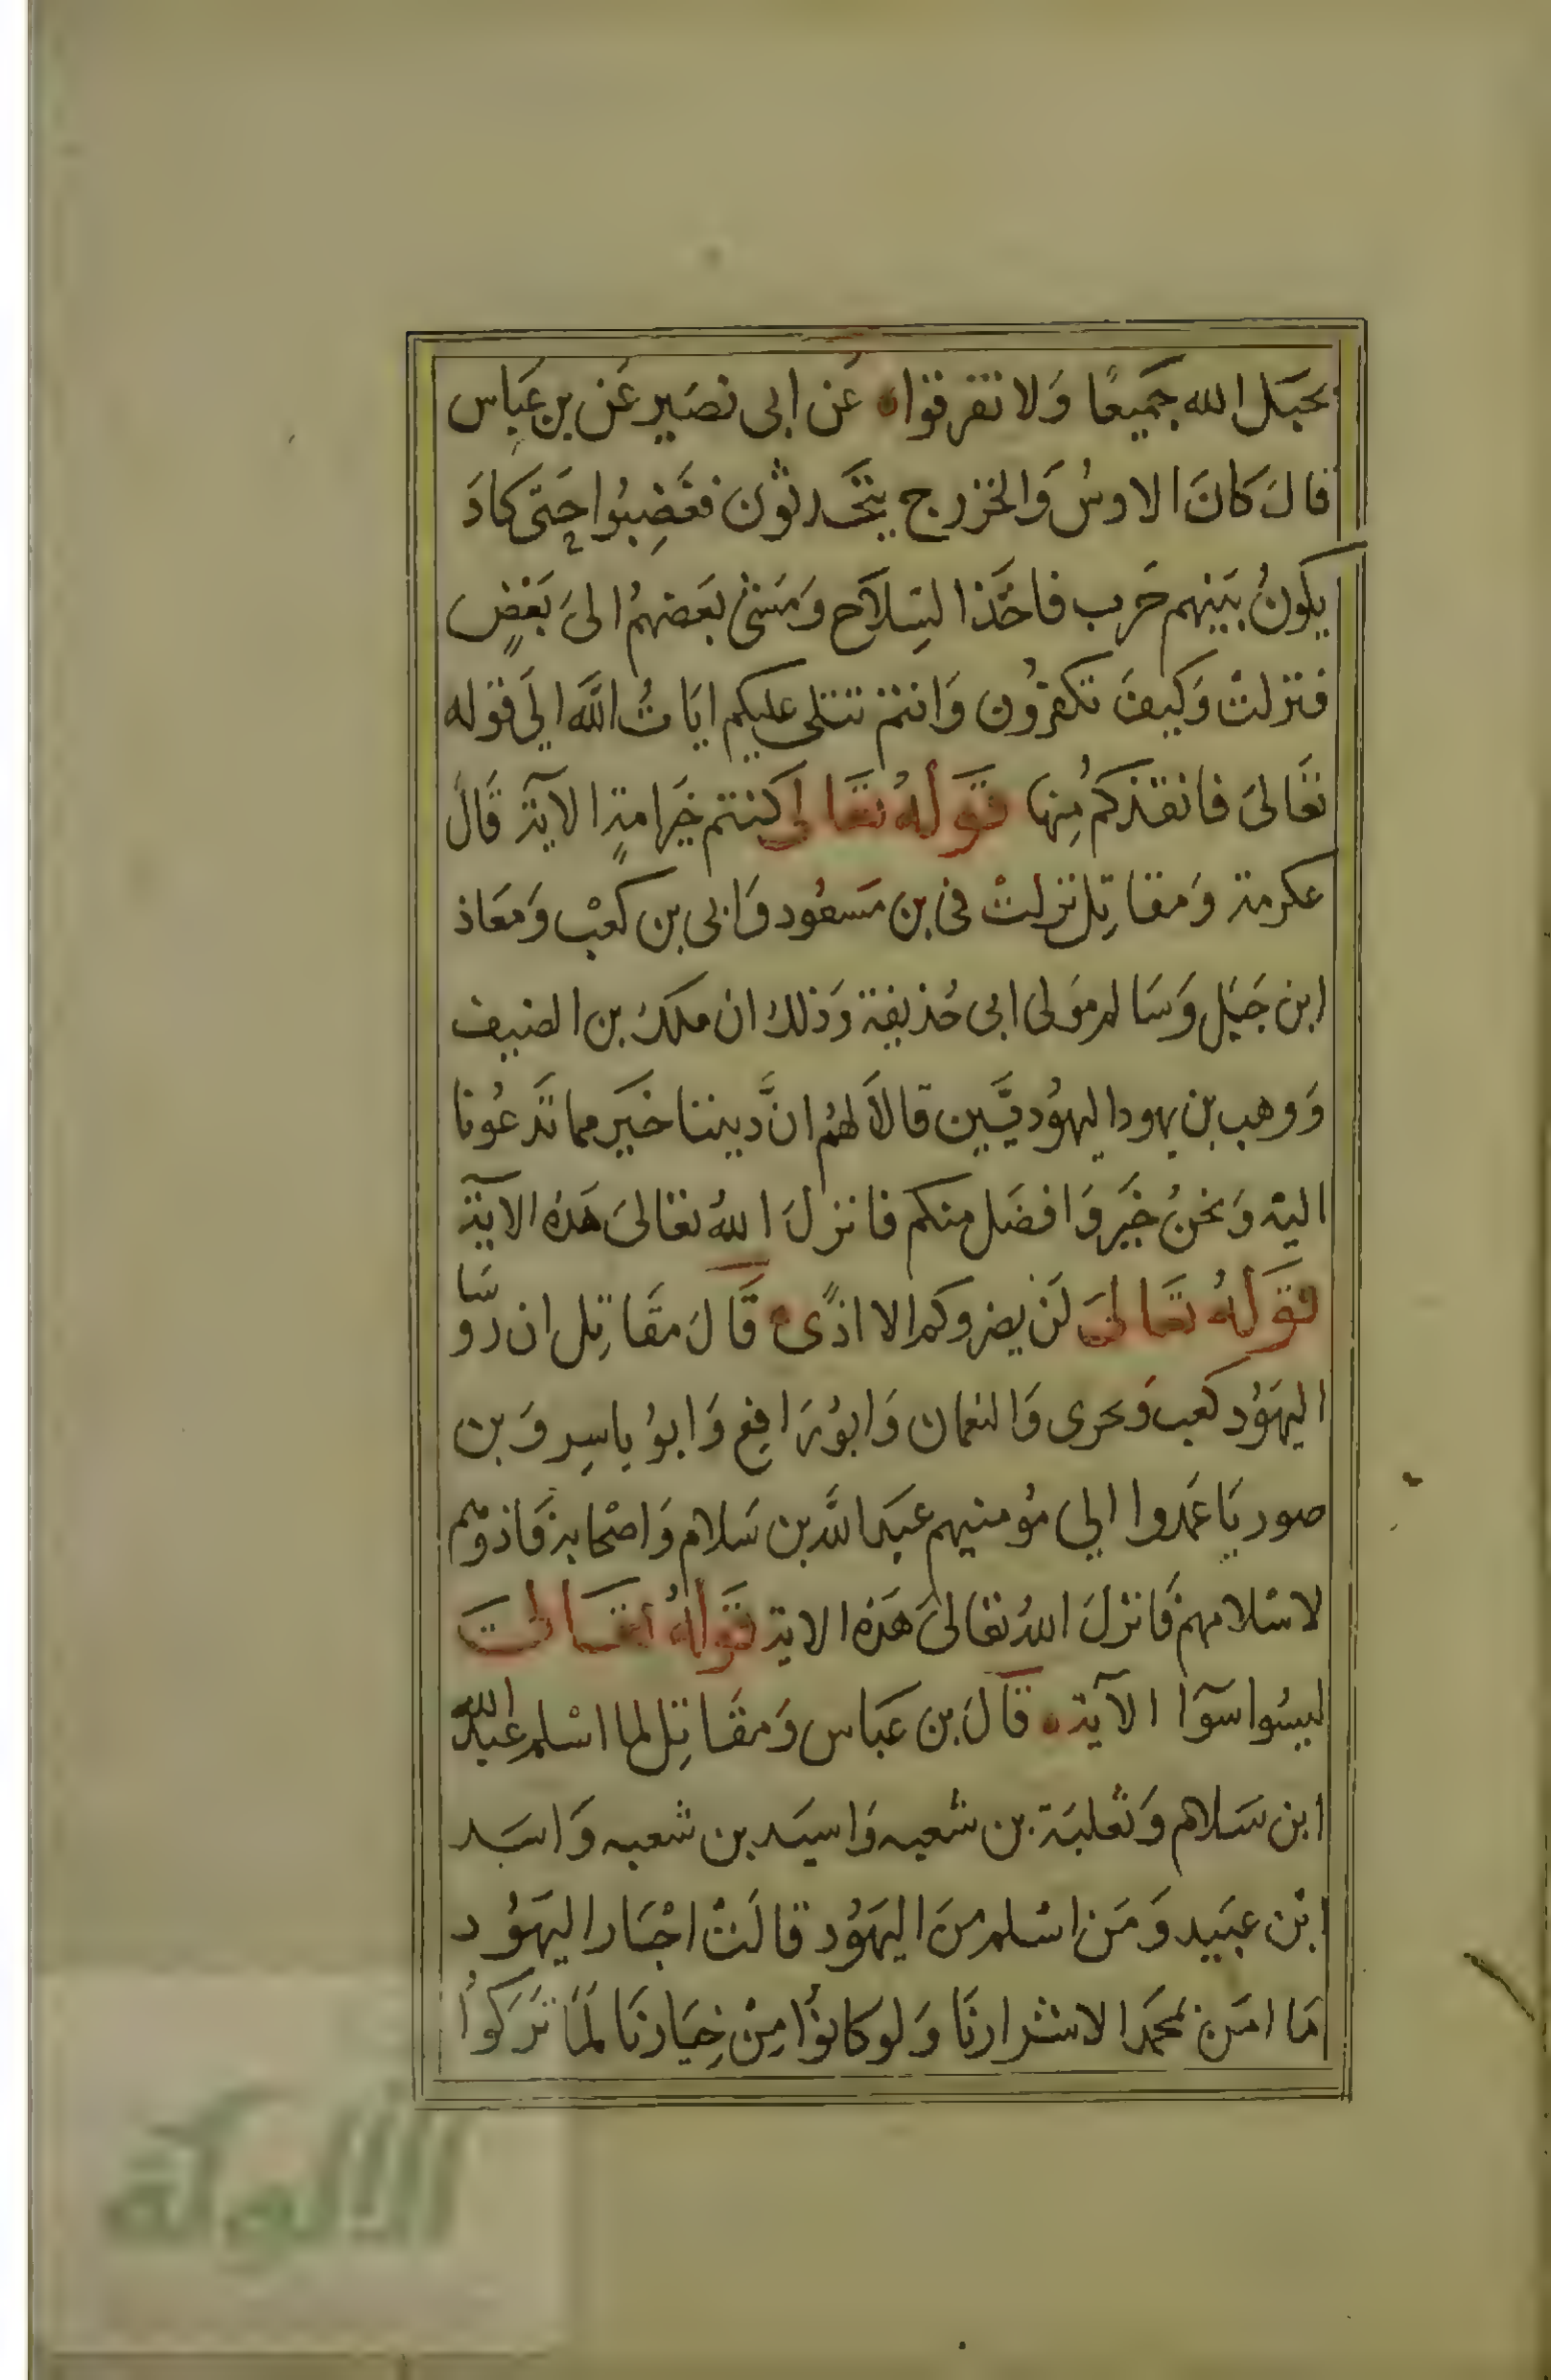 بحبل الله جميعًا وَلا تفرقوا عَن ابى نصَير عَن بن عبَاس
قالَ كَانَ الاوسُ وَالخزرج يتحَدثون فغَضِبُوا حَتى كادَ
يكونُ بَينهم حَرب فاخَذا السِلاَح وَمَشىٰ بعَضهمُ الىَ بَعْضٍ
فنزلتْ وَكيفَ تكفرُون وَانتم تتلى عليكم ايَاتُ اللَّه اليَ قوله
تعَالىَ فانقذكمُ مِنها قَولهُ تعَالى كنتم خيَر امةٍ الاآية قَالَ
عكرمة وَمقاتِل نزلتْ فى بن مسَعُود وَابى بن كعبْ وَمعَاذ
ابن جَبَل وَسَالم مَولى ابى حُذيفة وَذلك ان ملكَ بن الضيف
وَوهب بن يهودا ليهوُديَّين قالاَ لهُم انَّ ديننا خيَر مما تدَعُونا
اليْه وَنحنُ خيَر وَافضَل منكم فانزلَ اللهُ تعَالىَ هَذه الاآية
قوَلهُ تعَالىَ لَن يضروكم الا اذًى قَالَ مقَاتِل ان رُوسَا
اليهَوُد كعب وَبحرى وَالنعمان وَابوُ رَافِع وَابوُ ياسِر وَبن
صوريَا عَمدوا الي مُومنيهم عبَد اللَّه بن سَلام وَاصْحابه فَاذوهْم
لاسْلامهم فَانزلَ اللهُ تعَالىَ هَذه الاية قَولهُ تعَالىَ
ليسُوا سَوآ الآية قَالَ بن عبَاس وَمقَاتِل لما اسْلم عبد الله
ابن سَلام وَثعْلبَة بن شعبه وَاسيَد بن شعبه وَاسَد
ابْن عبَيد وَمَن اسْلم منَ اليهَوُد قالَتْ احْبَار اليهَوُد
مَا امَن بمحَمد الا شرارنَا وَلوكانوُا مِنْ خِيَارنَا لمَا تَرَكوُا
الألوكة